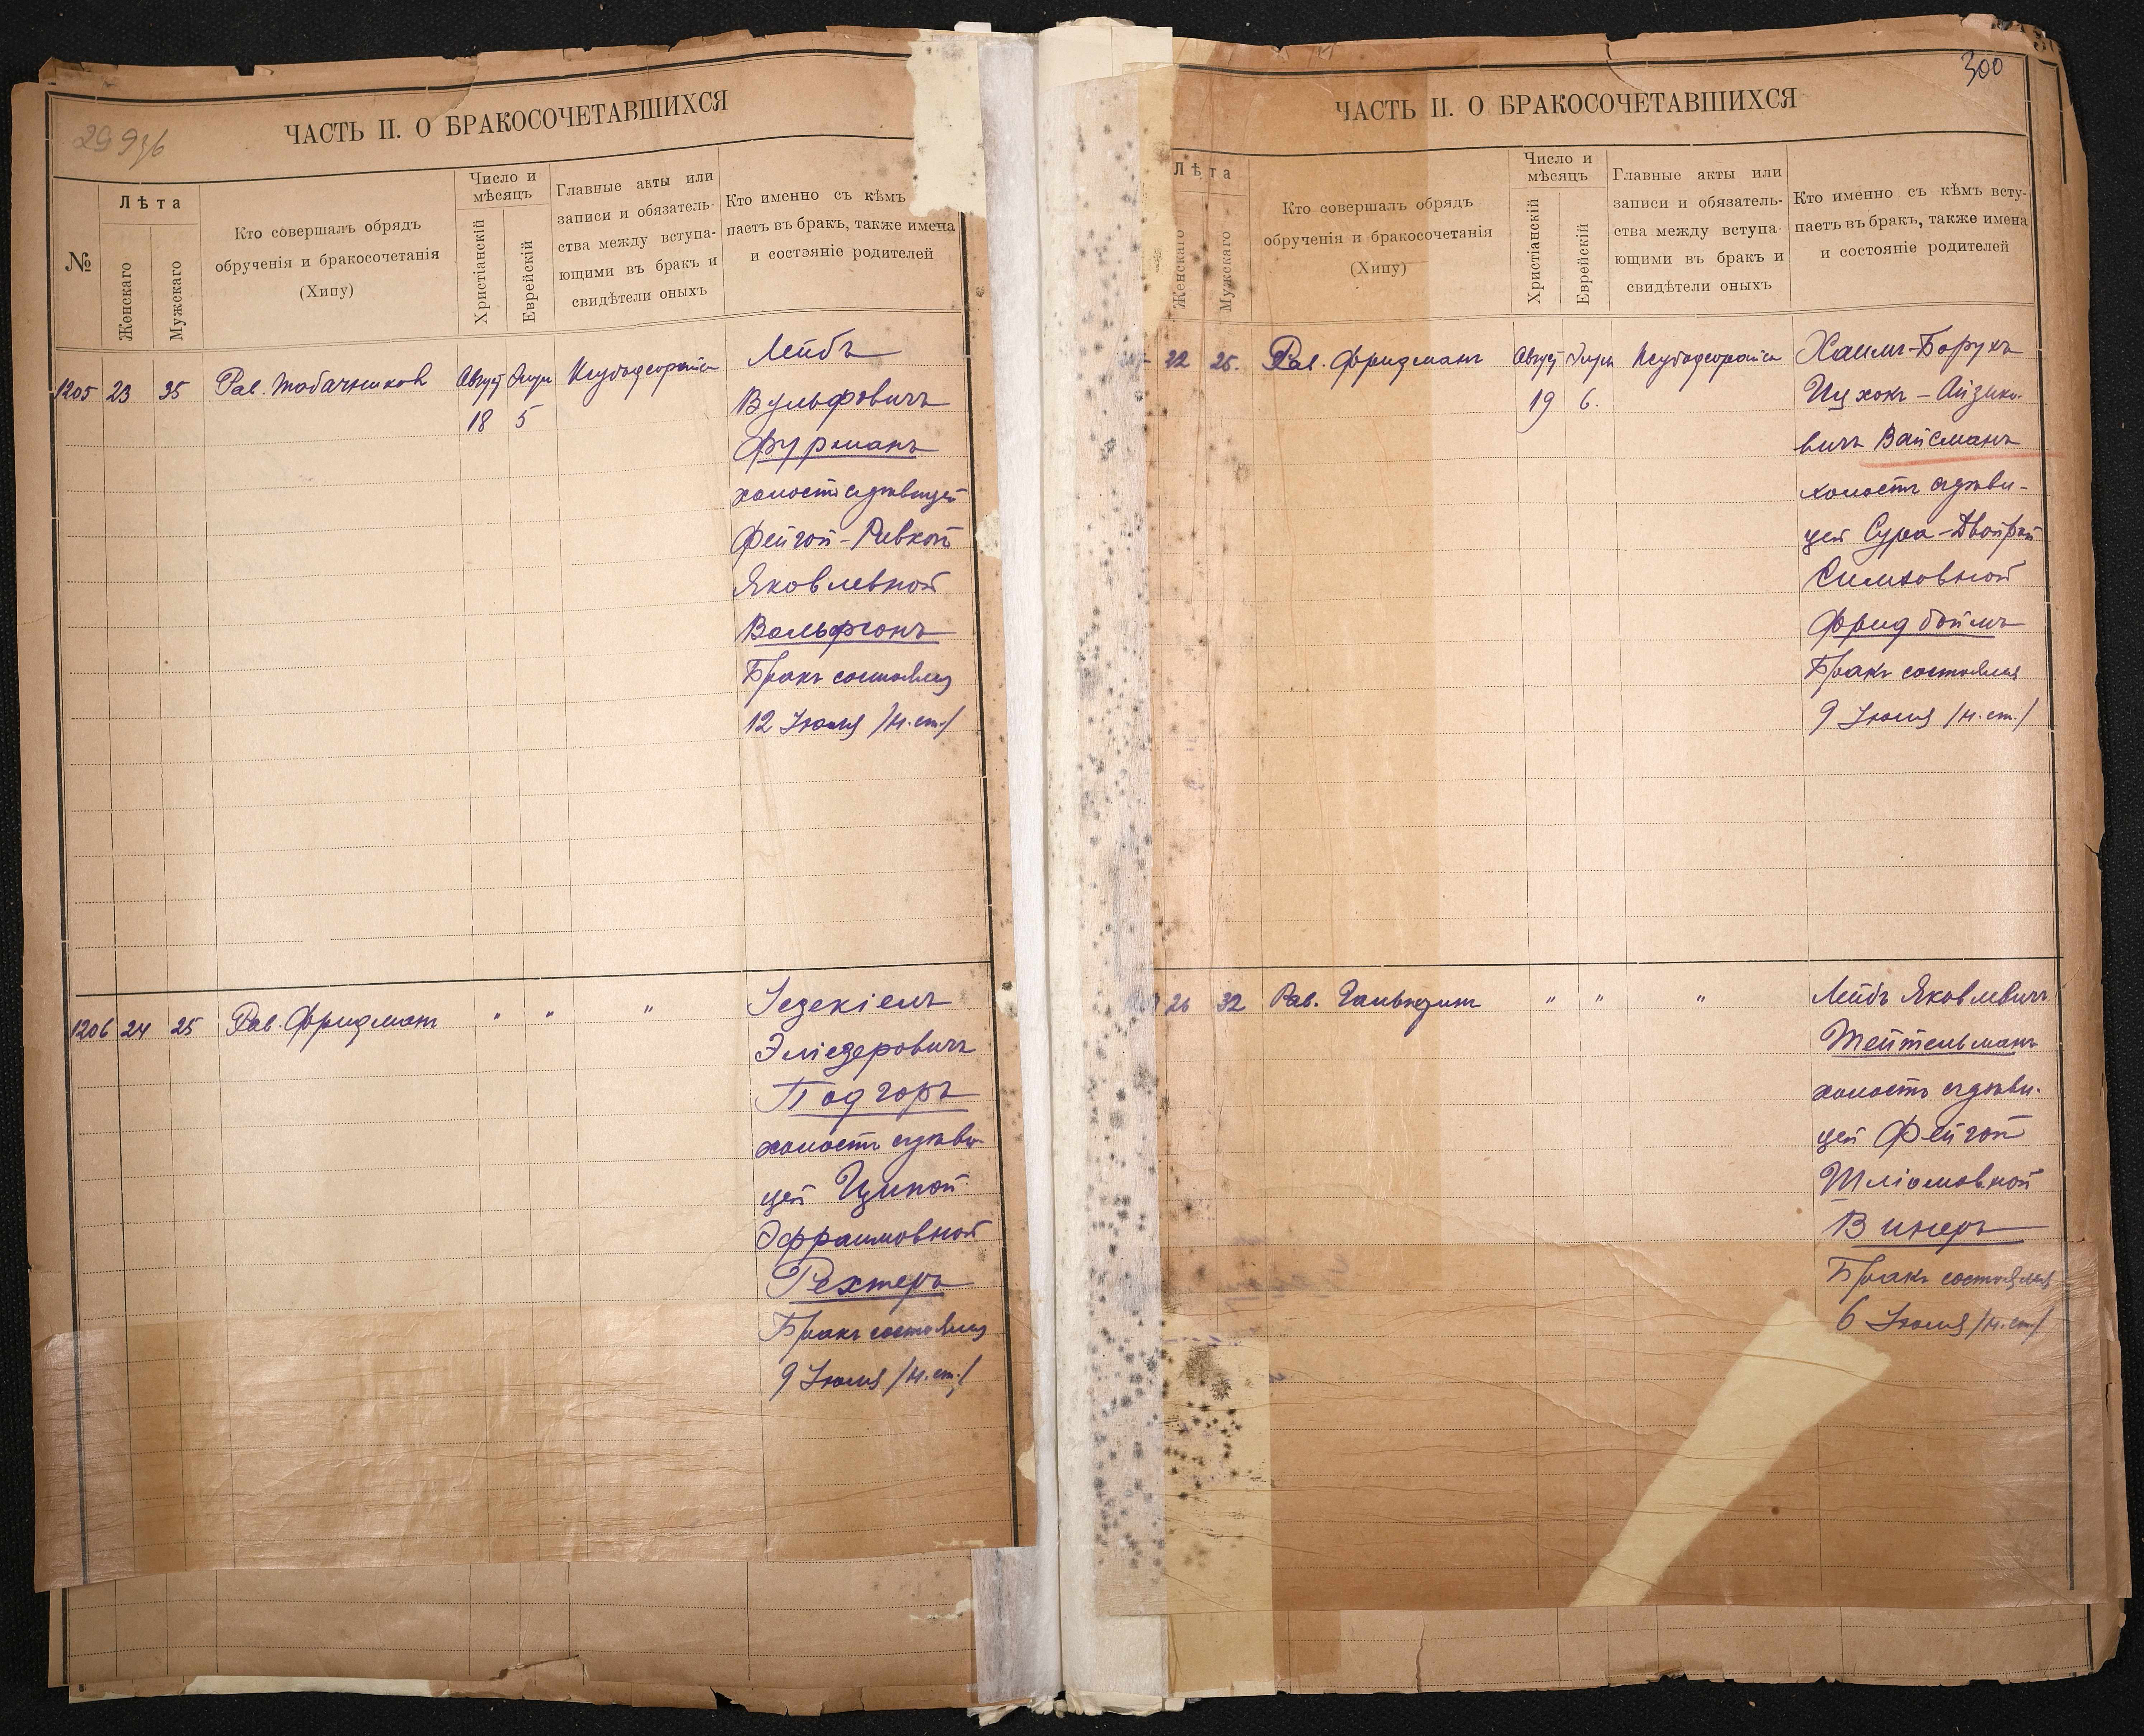 29 936
ЧАСТЬ II. О БРАКОСОЧЕТАВШИХСЯ
№
Лѣта
Женскаго
Мужскаго
Кто совершалъ обрядъ
обрученія и бракосочетанія
(Хипу)
Число и
мѣсяцъ
Христіанскій
Еврейскій
Главные акты или
записи и обязатель-
ства между вступа-
ющими въ бракъ и
свидѣтели оныхъ
Кто именно съ кѣмъ
паетъ въ бракъ, также имена
и состояніе родителей
1205 23 35 Рав. Табачников Август
18 5
Лейбъ
Вульфовичъ
Фурманъ
холостъ съ дѣвицей
Фейгой-Ривкой
Яковлевной
Вольфсонъ
Бракъ состоялся
12 Іюля /н.ст./
1206 24 25 Рав. Фридманъ " " "
Іезекіелъ
Эліезеровичъ
Подгоръ
холостъ съ дѣви-
цей Ципой
Эфраимовной
Рехтеръ
Бракъ состоялся
9 Іюля /н.ст./
300
ЧАСТЬ II. О БРАКОСОЧЕТАВШИХСЯ
Лѣта
Женскаго
Мужскаго
Кто совершалъ обрядъ
обрученія и бракосочетанія
(Хипу)
Число и
мѣсяцъ
Христіанскій
Еврейскій
Главные акты или
записи и обязатель-
ства между вступа-
ющими въ бракъ и
свидѣтели оныхъ
Кто именно съ кѣмъ всту-
паетъ въ бракъ, также имена
и состояніе родителей
22 25. Рав. Фридманъ Август
19 6.
Хаимъ-Борухъ
Ицхокъ-Айзико-
вичъ Вайсманъ
холостъ съ дѣви-
цей Сура-Двойрой
Симховной
Фридбоймъ
Бракъ состоялся
9 Іюля /н.ст./
26 32 Рав. " " "
Лейбъ Яковлевичъ
Тейтельманъ
холостъ съ дѣви-
цей Фейгой
Шліомовной
Винеръ
Бракъ состоялся
6 Іюля /н.ст./